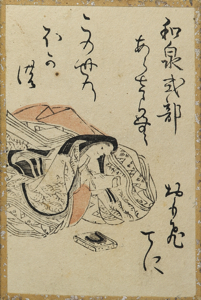 和泉式部
あらさらむ
この世の
ほかの
おもひ
てに